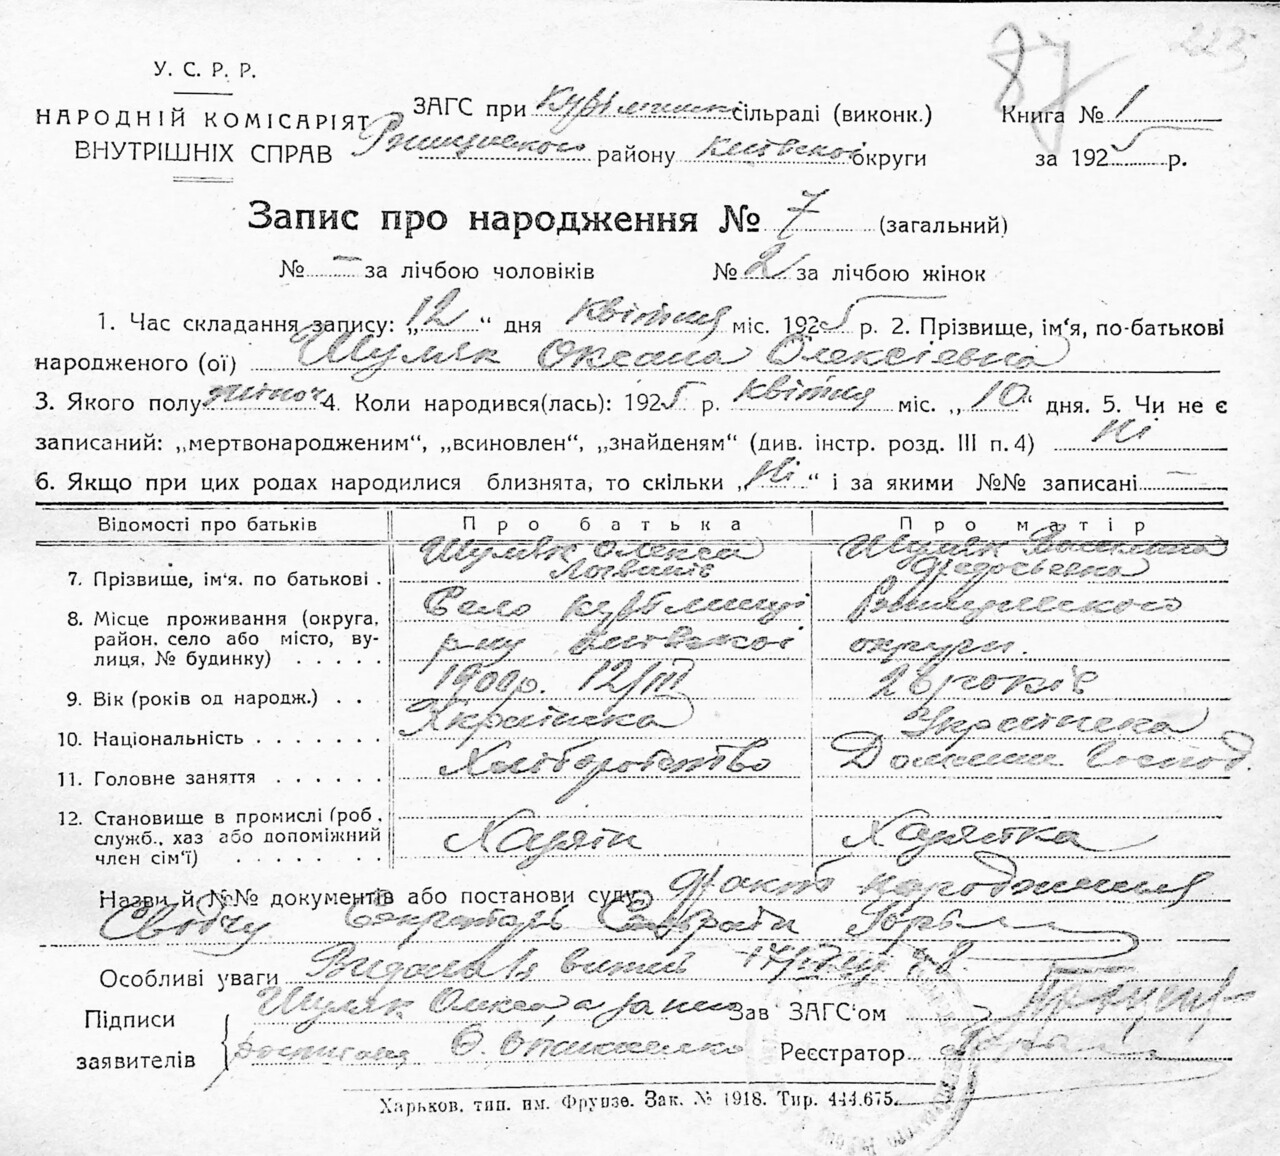 87
223
У. С. Р. Р.
НАРОДНІЙ КОМІСАРІЯТ
ВНУТРІШНІХ СПРАВ
ЗАГС при сільраді (виконк.)
району Київської округи
Книга № 1
за 1925 р.
Запис про народження № 7 (загальний)
№ – за лічбою чоловіків № 2 за лічбою жінок
1. Час складання запису: „12“ дня квітня міс. 1925 р. 2. Прізвище, ім'я, по-батькові
народженого (ої) Шуляк Оксана Олексіевна
3. Якого полу жіноч 4. Коли народився(лась): 1925 р. квітня міс. „10“ дня. 5. Чи не є
записаний: „мертвонародженим“, „всиновлен“, „знайденям“ (див. інстр. розд. III п. 4) Ні
6. Якщо при цих родах народилися близнята, то скільки „Ні“ і за якими №№ записані –
Відомості про батьків Про батька Про матір
7. Прізвище, ім'я, по батькові . Шуляк Олекса Шуляк
Логвинів Федосьевна
8. Місце проживання (округа, Село
район, село або місто, ву- р-ну Київської округи.
лиця, № будинку) . . . . .
9. Вік (років од народж.) . . 1900р. 12/III 26 років
10. Національність . . . . . . . Українська
11. Головне заняття . . . . . . Хліборобство Домашн. Господ.
12. Становище в промислі (роб.,
служб., хаз або допоміжний Хазяїн Хазяїка
член сім'ї) . . . . . .
Назви й №№ документів або постанови суду Факт народження
Свідчу Секретарь Сільради
Особливі уваги Видана
Підписи Шуляк Олекса, а за него Зав ЗАГС'ом
заявителів росписався О. Реєстратор
Харьков, тип. им. Фрунзе. Зак. № 1918. Тир. 444.675.